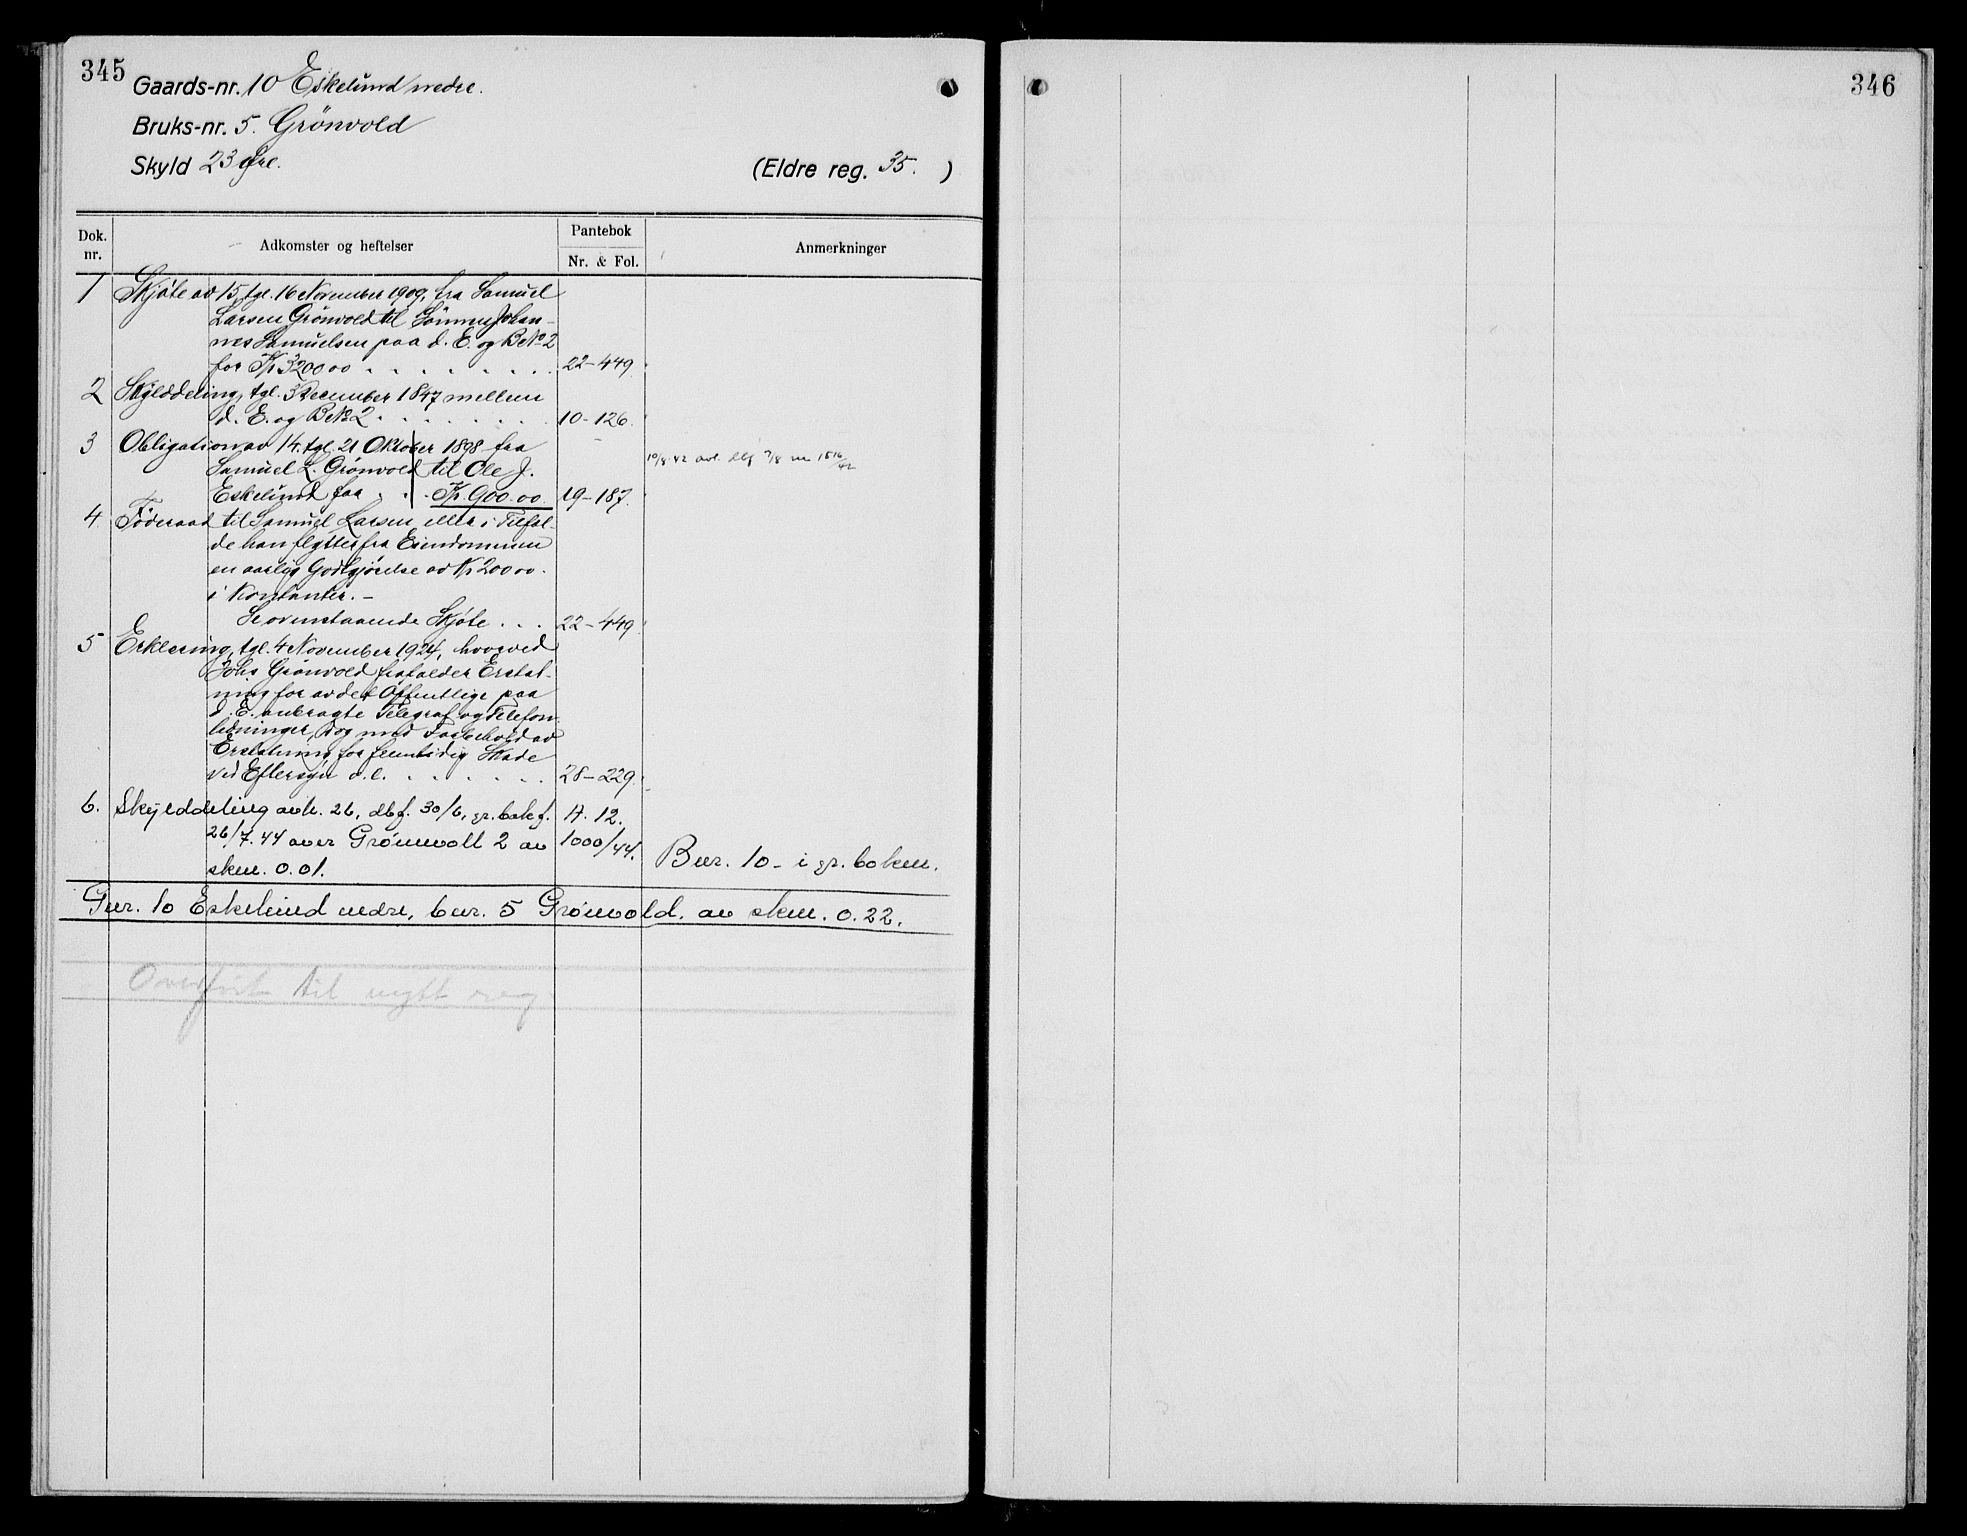 345
Gaards-nr. 10 Eskelund nedre.
Bruks-nr. 5. Grönvold
Skyld 23 øre.
(Eldre reg. 35. )
Dok. nr.
Adkomster og heftelser
Pantebok
Nr. & Fol.
Anmerkninger
1 Skjøte av 15, tgl. 16 November 1909, fra Samuel
Larsen Grønvold til Sønnen Johan-
nes Samuelsen paa d. E. og B No 2
for Kr 3200 00 . . . . . . . . 22-449.
2 Skylddeling, tgl. 3 December 1847 mellem
d. E. og B No 2 . . . . . . . 10-126.
3 Obligation av 14. tgl. 21 Oktober 1898 fra
Samuel L. Grønvold til Ole J.
Eskelund for . . . Kr. 900.00. 19-187.
10/8.42 avl. dbf 7/8 1516/42
4 Føderaad til Samuel Larsen eller i Tilfæl-
de han flytter fra Eiendommen
en aarlig Godtgjørelse av Kr 200 00.
i Kontanter. -
Se ovenstaaende Skjøte . . . 22-449.
5 Erklæring, tgl. 4 November 1924, hvorved
Johs Grønvold frafalder Erstat-
ning for av det Offentlige paa
d. E. anbragte Telegraf og Telefon-
ledninger, dog med Forbehold av
Erstatning for fremtidig Skade
ved Eftersyn o.l. . . . . . . 28-229.
6. Skylddeling avh. 26, dbf. 30/6, gr. bok f. A. 12.
26/7.44 over Grønnvoll 2 av 1000/44.
skm. 0.01.
Bnr. 10 - i gr. boken.
Gnr. 10 Eskelund nedre, bnr. 5 Grønvold. av skm. 0.22.
Overført til nytt reg
346